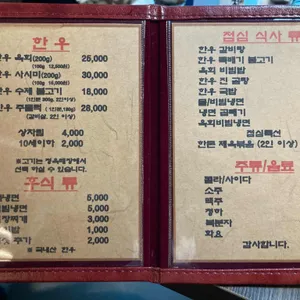 한우
한우 육회(200g) 25,000
(100g 12,500원)
한우 사시미(200g) 30,000
(100g 15,000원)
한우 수제 불고기 18,000
(1인분 200g, 2인이상)
한우 주물럭 28,000
(갈비살, 2인 이상)
상차림 4,000
10세이하 2,000
※고기는 정육매장에서
선택 하실 수 있습니다.
후식 류
냉면 5,000
비빔냉면 5,000
된장찌개 3,000
1,000
추가 2,000
※ 국내산 한우
점심 식사 류
한우 갈비탕
한우 뚝배기 불고기
육회 비빔밥
한우 전 골탕
한우 국밥
물/비빔냉면
냉면 곱빼기
육회비빔냉면
점심특선
한돈 제육볶음 (2인 이상)
주류/음료
콜라/사이다
소주
맥주
청하
복분자
화요
감사합니다.